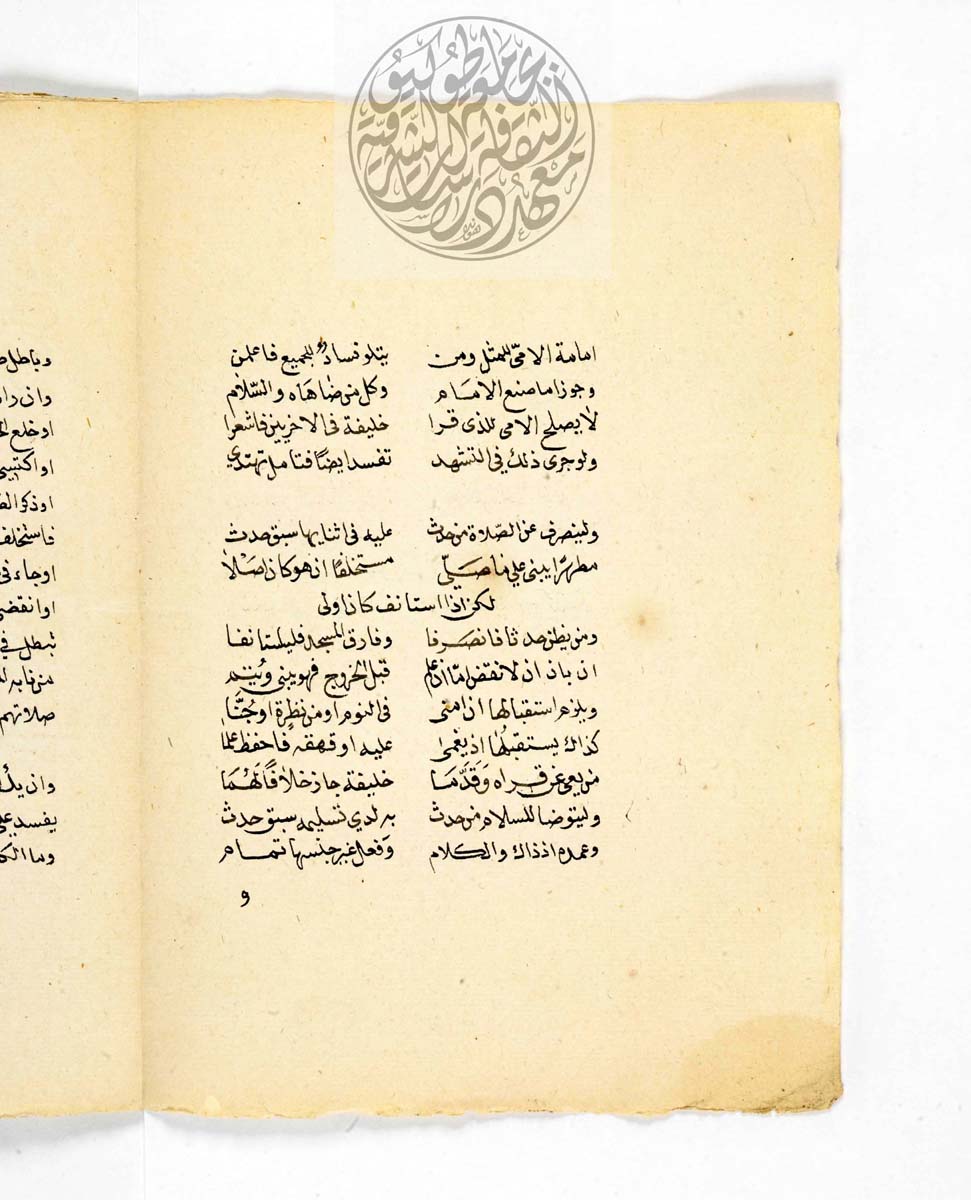 معهد دراسات الثقافة الشرقية بجامعة طوكيو
امامة الامى للمثل ومن يتلو فساد للجميع فاعلمن
وجوزا ما صنع الامام وكل من ضاهاه والسلام
لا يصلح الامى للذى قرا خليفة فى الاخريين فاشعرا
ولو جرى ذلك فى التشهد تفسد ايضا فتامل تهتدي
ولينصرف عن الصلاة من حدث عليه فى اثنايها سبق حدث
مطهرا يبنى على ما صلى مستخلفا ان هو كان اصلا
لكن اذا استانف كان اولى
ومن يظن حدثا فانصرفا وفارق المسجد فليستانفا
ان بان ان لا نقض اما ان علم قبل الخروج فهو يبنى ويتم
ويلزم استقبالها ان امنى فى النوم او من نظرة او جنا
كذاك يستقبلها اذ يغمى عليه او قهقه فاحفظ علما
من يعى عن قراه وقدما خليفة جاز خلافا لهما
وليتوضا للسلام من حدث به لدي تسليمه سبق حدث
وعمده اذ ذاك والكلام وفعل غير جنسها تمام
و
وباطل
وان
او خلع
او
او ذكر
فاستخلف
او جاء فى
او انقضى
تبطل فى
من نابه
صلاتهم
وان يك
يفسد
وما